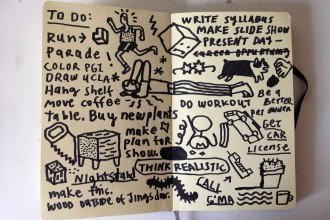 TO DO:
Run →
Parade
COLOR PGI
DRAW UCLA*
Hang shelf
move coffee
table. Buy new plants
make
plan for
show.
Nightstand
make this.
WOOD OUTSIDE OF Jingsdao
WRITE SYLLABUS
MAKE SLIDE SHOW
PRESENT DAY -
CAREER OPPURTUNITY
DO WORKOUT
Be a
BETTER
PET OWNER
GET
CAR
LICENSE
THINK REALISTIC
CALL
G'MA